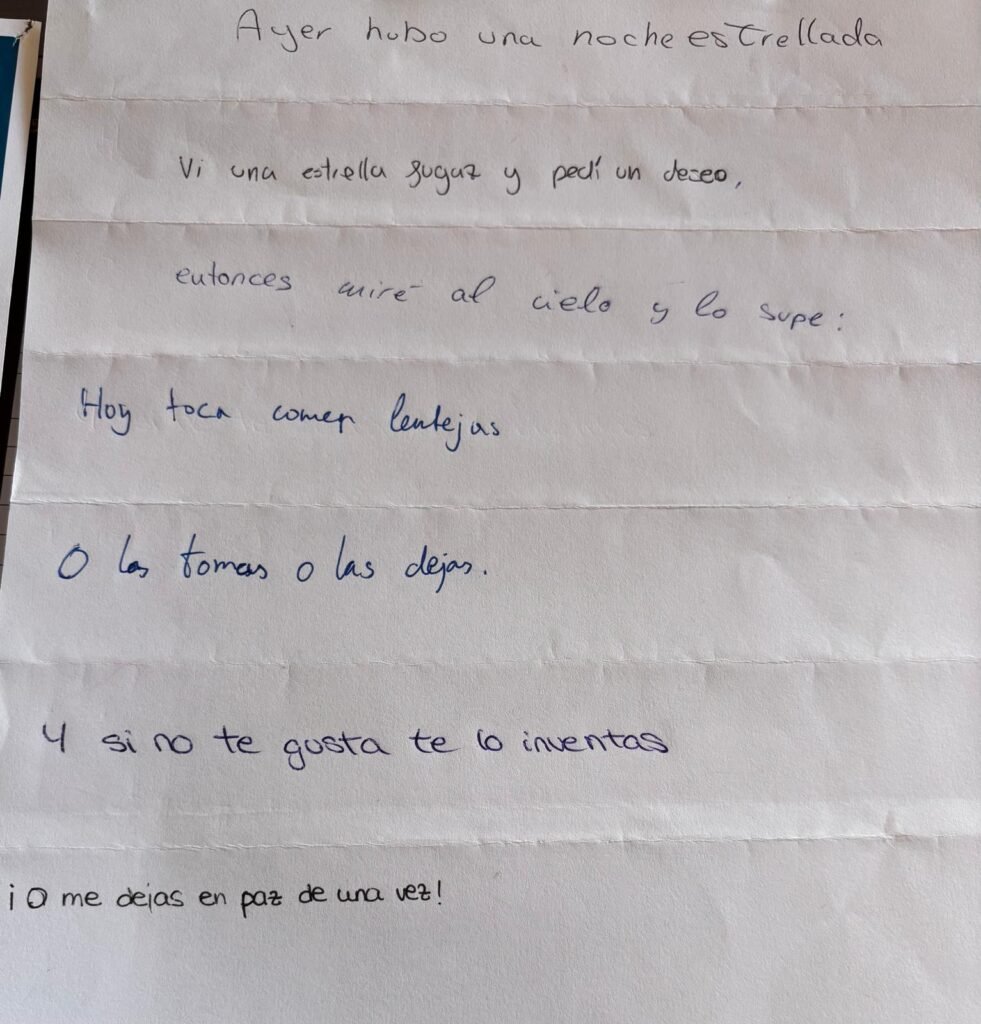 Ayer hubo una noche estrellada
Vi una estrella fugaz y pedí un deseo,
entonces miré al cielo y lo supe:
Hoy toca comer lentejas
O las tomas o las dejas.
Y si no te gusta te lo inventas
¡O me dejas en paz de una vez!